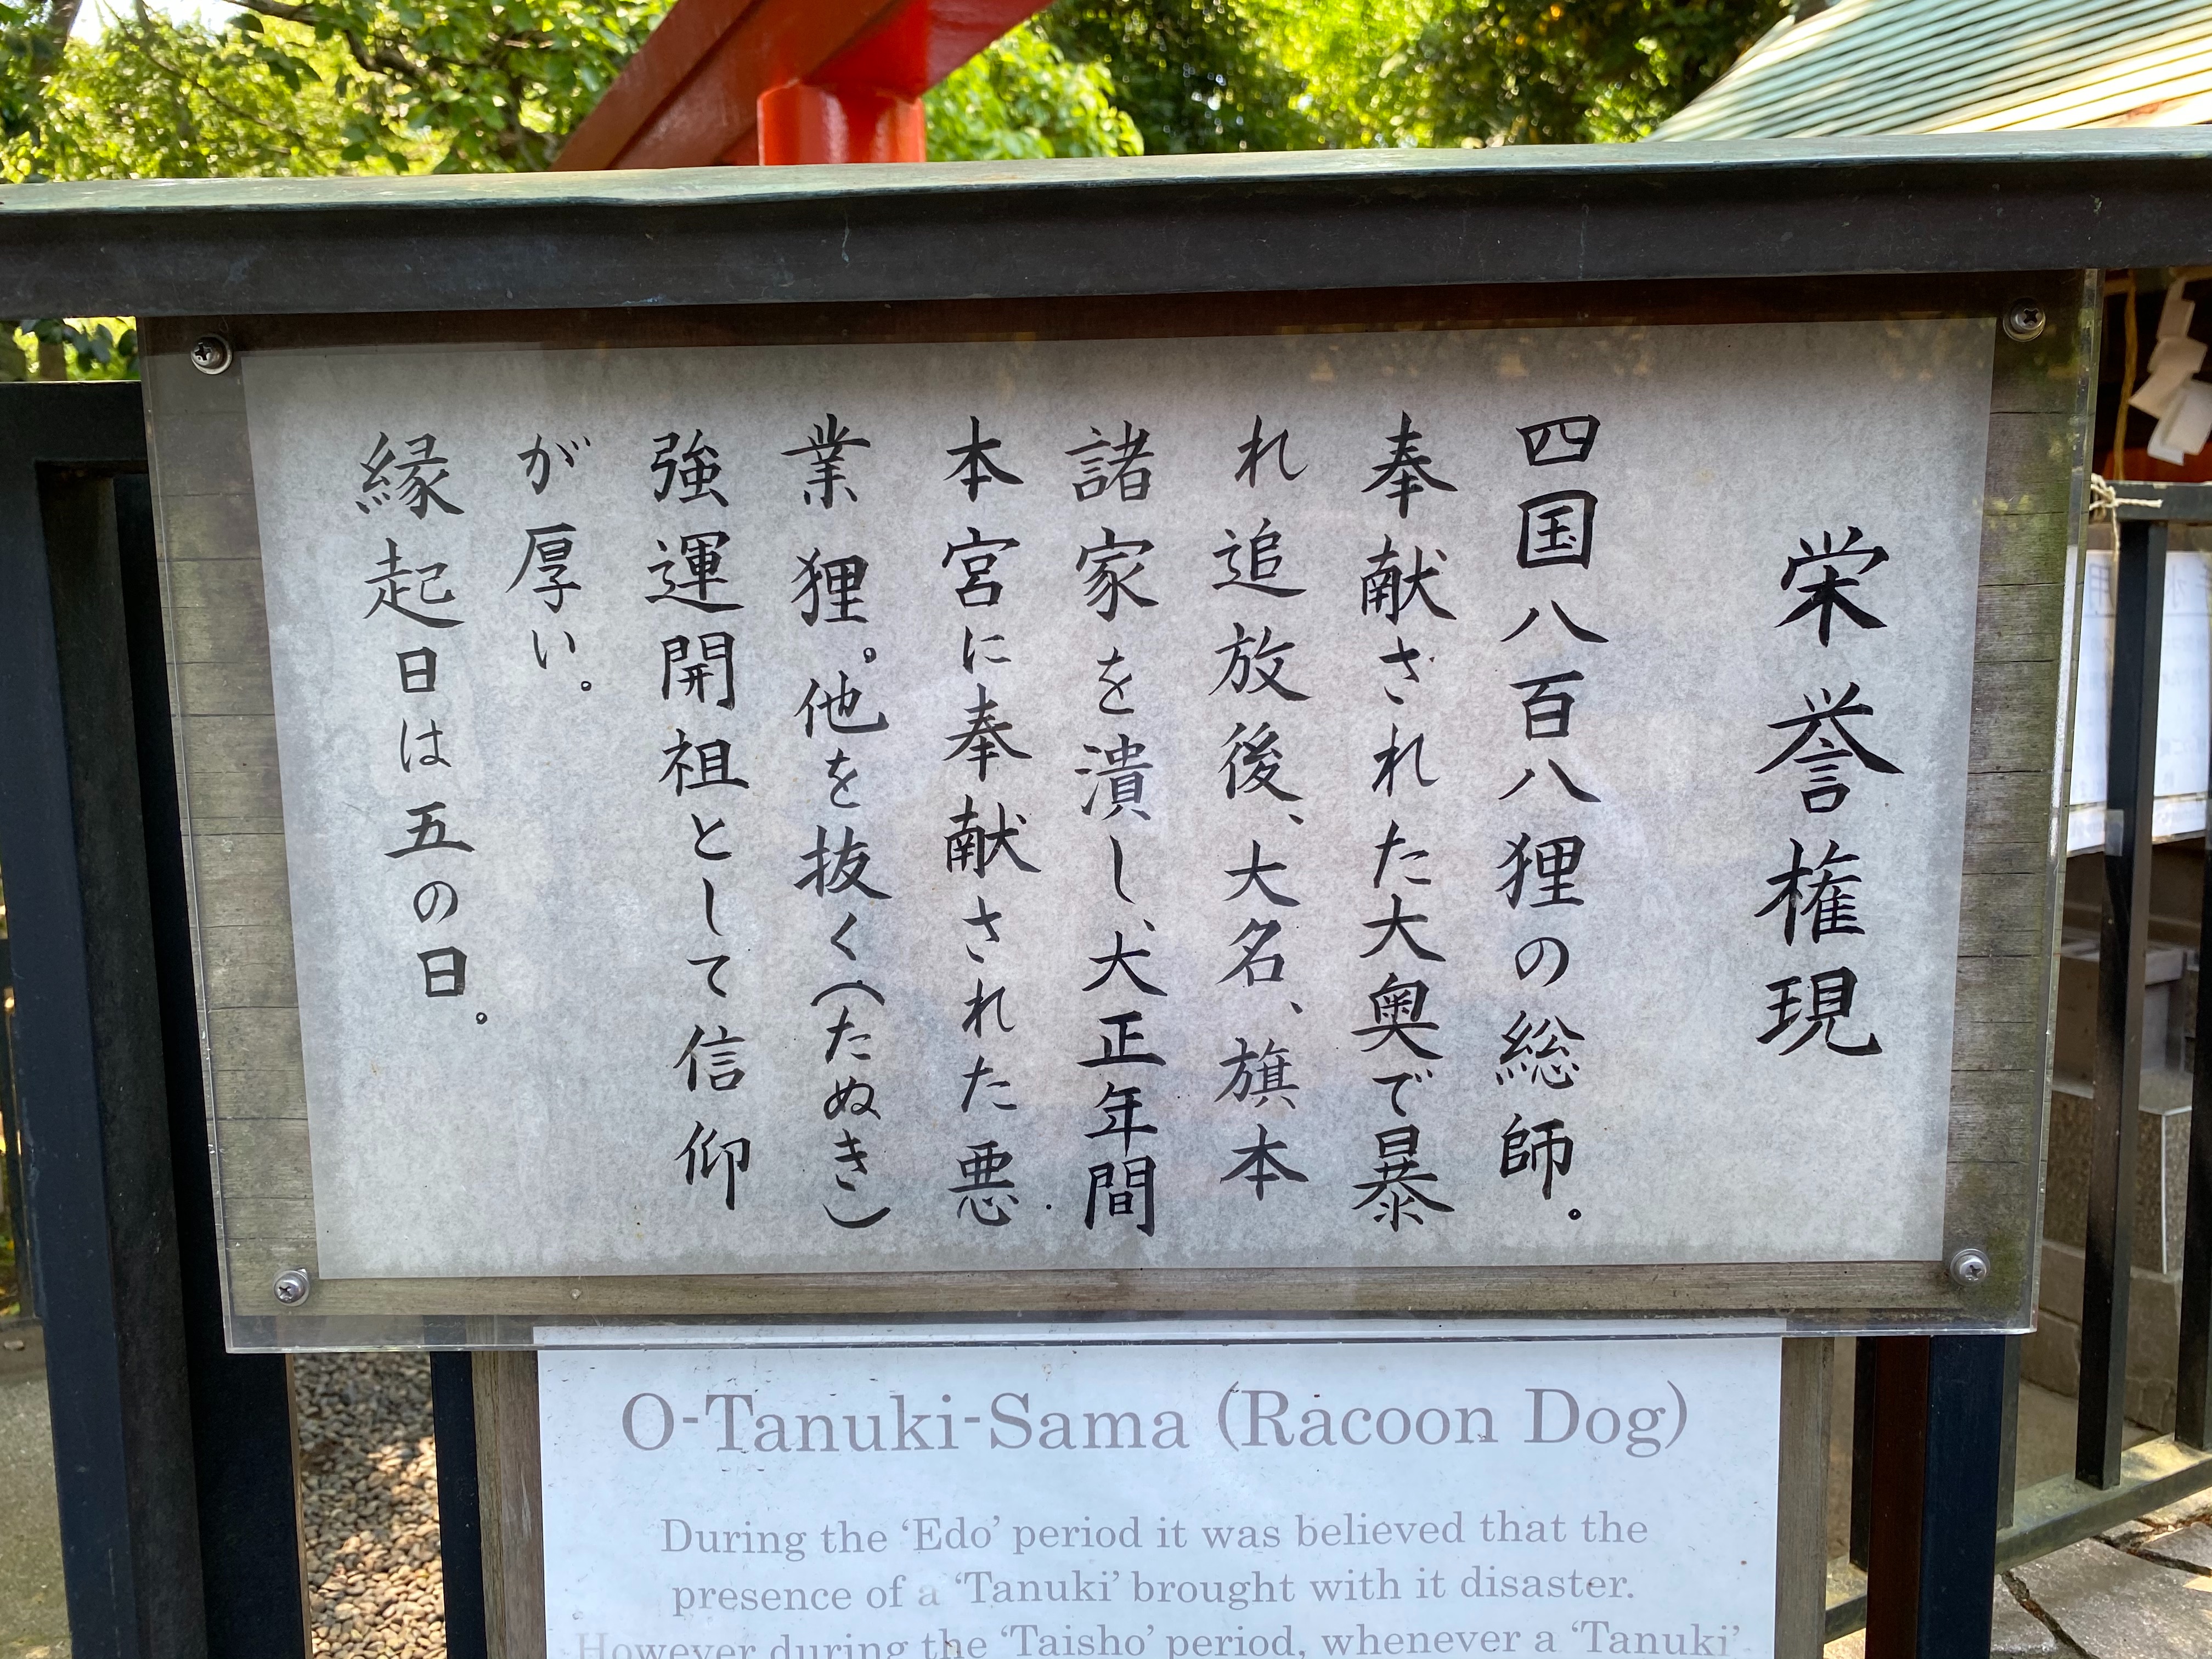 栄誉権現
四国八百八狸の総師。
奉献された大奥で暴
れ追放後、大名、旗本
諸家を潰し、大正年間
本宮に奉献された悪
業狸。他を抜く(たぬき)
強運開祖として信仰
が厚い。
縁起日は五の日。
O-Tanuki-Sama (Racoon Dog)
During the ‘Edo’ period it was believed that the
presence of a ‘Tanuki’ brought with it disaster.
However during the ‘Taisho’ period, whenever a ‘Tanuki’